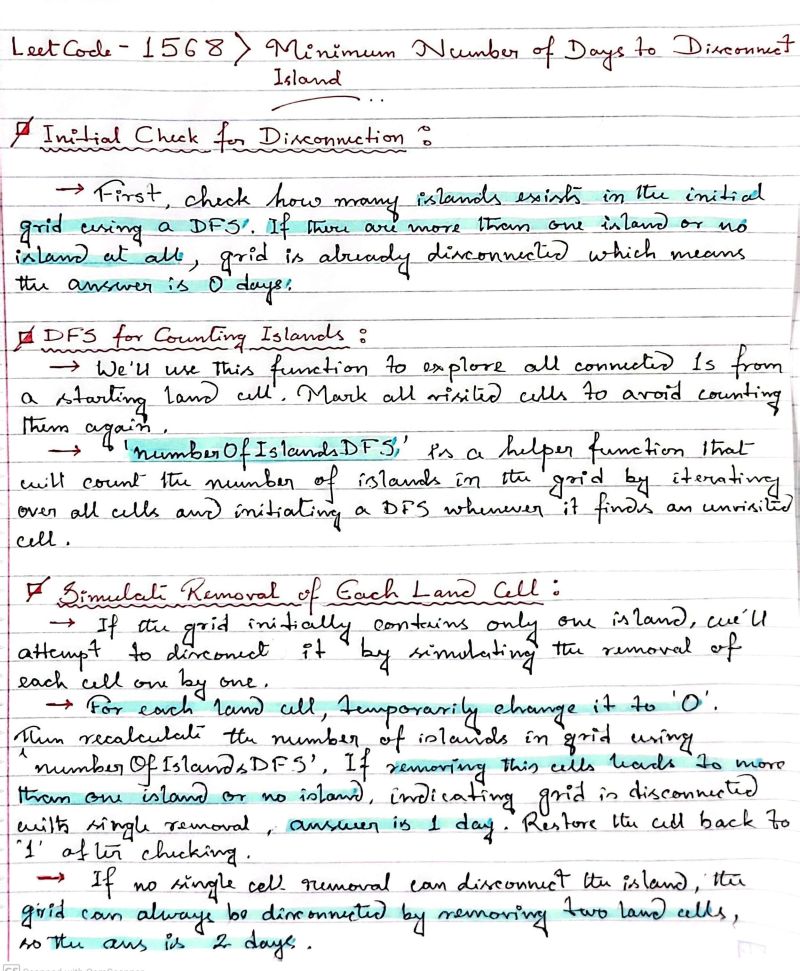 LeetCode - 1568 > Minimum Number of Days to Disconnect
Island
Initial Check for Disconnection :
→ First, check how many islands exists in the initial
grid using a DFS. If there are more than one island or no
island at all, grid is already disconnected which means
the answer is 0 days.
DFS for Counting Islands :
→ We'll use this function to explore all connected 1s from
a starting land cell. Mark all visited cells to avoid counting
them again.
→ 'numberOfIslandsDFS' is a helper function that
will count the number of islands in the grid by iterating
over all cells and initiating a DFS whenever it finds an unvisited
cell.
Simulate Removal of Each Land Cell :
→ If the grid initially contains only one island, we'll
attempt to disconect it by simulating the removal of
each cell one by one.
→ For each land cell, temporarily change it to '0'.
Then recalculate the number of islands in grid using
'numberOfIslandsDFS'. If removing this cells leads to more
than one island or no island, indicating grid is disconnected
with single removal, answer is 1 day. Restore the cell back to
'1' after checking.
→ If no single cell removal can disconnect the island, the
grid can always be disconnected by removing two land cells,
so the ans is 2 days.